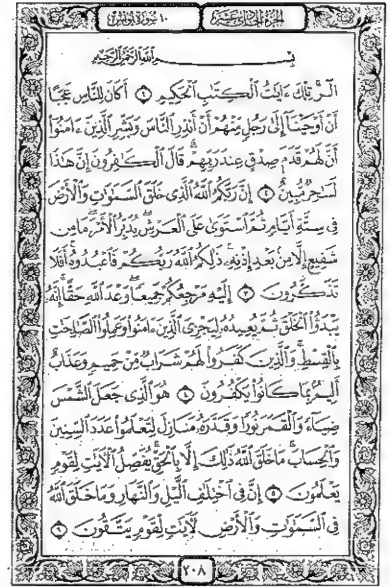 الجزء الحادي عشر ١٠ سورة يونس
بِسْمِ اللَّهِ الرَّحْمَٰنِ الرَّحِيمِ
الٓر ۚ تِلْكَ ءَايَٰتُ ٱلْكِتَٰبِ ٱلْحَكِيمِ ١ أَكَانَ لِلنَّاسِ عَجَبًا
أَنْ أَوْحَيْنَآ إِلَىٰ رَجُلٍ مِّنْهُمْ أَنْ أَنذِرِ ٱلنَّاسَ وَبَشِّرِ ٱلَّذِينَ ءَامَنُوٓا۟
أَنَّ لَهُمْ قَدَمَ صِدْقٍ عِندَ رَبِّهِمْ ۗ قَالَ ٱلْكَٰفِرُونَ إِنَّ هَٰذَا
لَسَٰحِرٌ مُّبِينٌ ٢ إِنَّ رَبَّكُمُ ٱللَّهُ ٱلَّذِى خَلَقَ ٱلسَّمَٰوَٰتِ وَٱلْأَرْضَ
فِى سِتَّةِ أَيَّامٍ ثُمَّ ٱسْتَوَىٰ عَلَى ٱلْعَرْشِ ۖ يُدَبِّرُ ٱلْأَمْرَ ۖ مَا مِن
شَفِيعٍ إِلَّا مِنۢ بَعْدِ إِذْنِهِۦ ۚ ذَٰلِكُمُ ٱللَّهُ رَبُّكُمْ فَٱعْبُدُوهُ ۚ أَفَلَا
تَذَكَّرُونَ ٣ إِلَيْهِ مَرْجِعُكُمْ جَمِيعًا ۖ وَعْدَ ٱللَّهِ حَقًّا ۚ إِنَّهُۥ
يَبْدَؤُا۟ ٱلْخَلْقَ ثُمَّ يُعِيدُهُۥ لِيَجْزِىَ ٱلَّذِينَ ءَامَنُوا۟ وَعَمِلُوا۟ ٱلصَّٰلِحَٰتِ
بِٱلْقِسْطِ ۚ وَٱلَّذِينَ كَفَرُوا۟ لَهُمْ شَرَابٌ مِّنْ حَمِيمٍ وَعَذَابٌ
أَلِيمٌۢ بِمَا كَانُوا۟ يَكْفُرُونَ ٤ هُوَ ٱلَّذِى جَعَلَ ٱلشَّمْسَ
ضِيَآءً وَٱلْقَمَرَ نُورًا وَقَدَّرَهُۥ مَنَازِلَ لِتَعْلَمُوا۟ عَدَدَ ٱلسِّنِينَ
وَٱلْحِسَابَ ۚ مَا خَلَقَ ٱللَّهُ ذَٰلِكَ إِلَّا بِٱلْحَقِّ ۚ يُفَصِّلُ ٱلْءَايَٰتِ لِقَوْمٍ
يَعْلَمُونَ ٥ إِنَّ فِى ٱخْتِلَٰفِ ٱلَّيْلِ وَٱلنَّهَارِ وَمَا خَلَقَ ٱللَّهُ
فِى ٱلسَّمَٰوَٰتِ وَٱلْأَرْضِ لَءَايَٰتٍ لِّقَوْمٍ يَتَّقُونَ ٦
٢٠٨